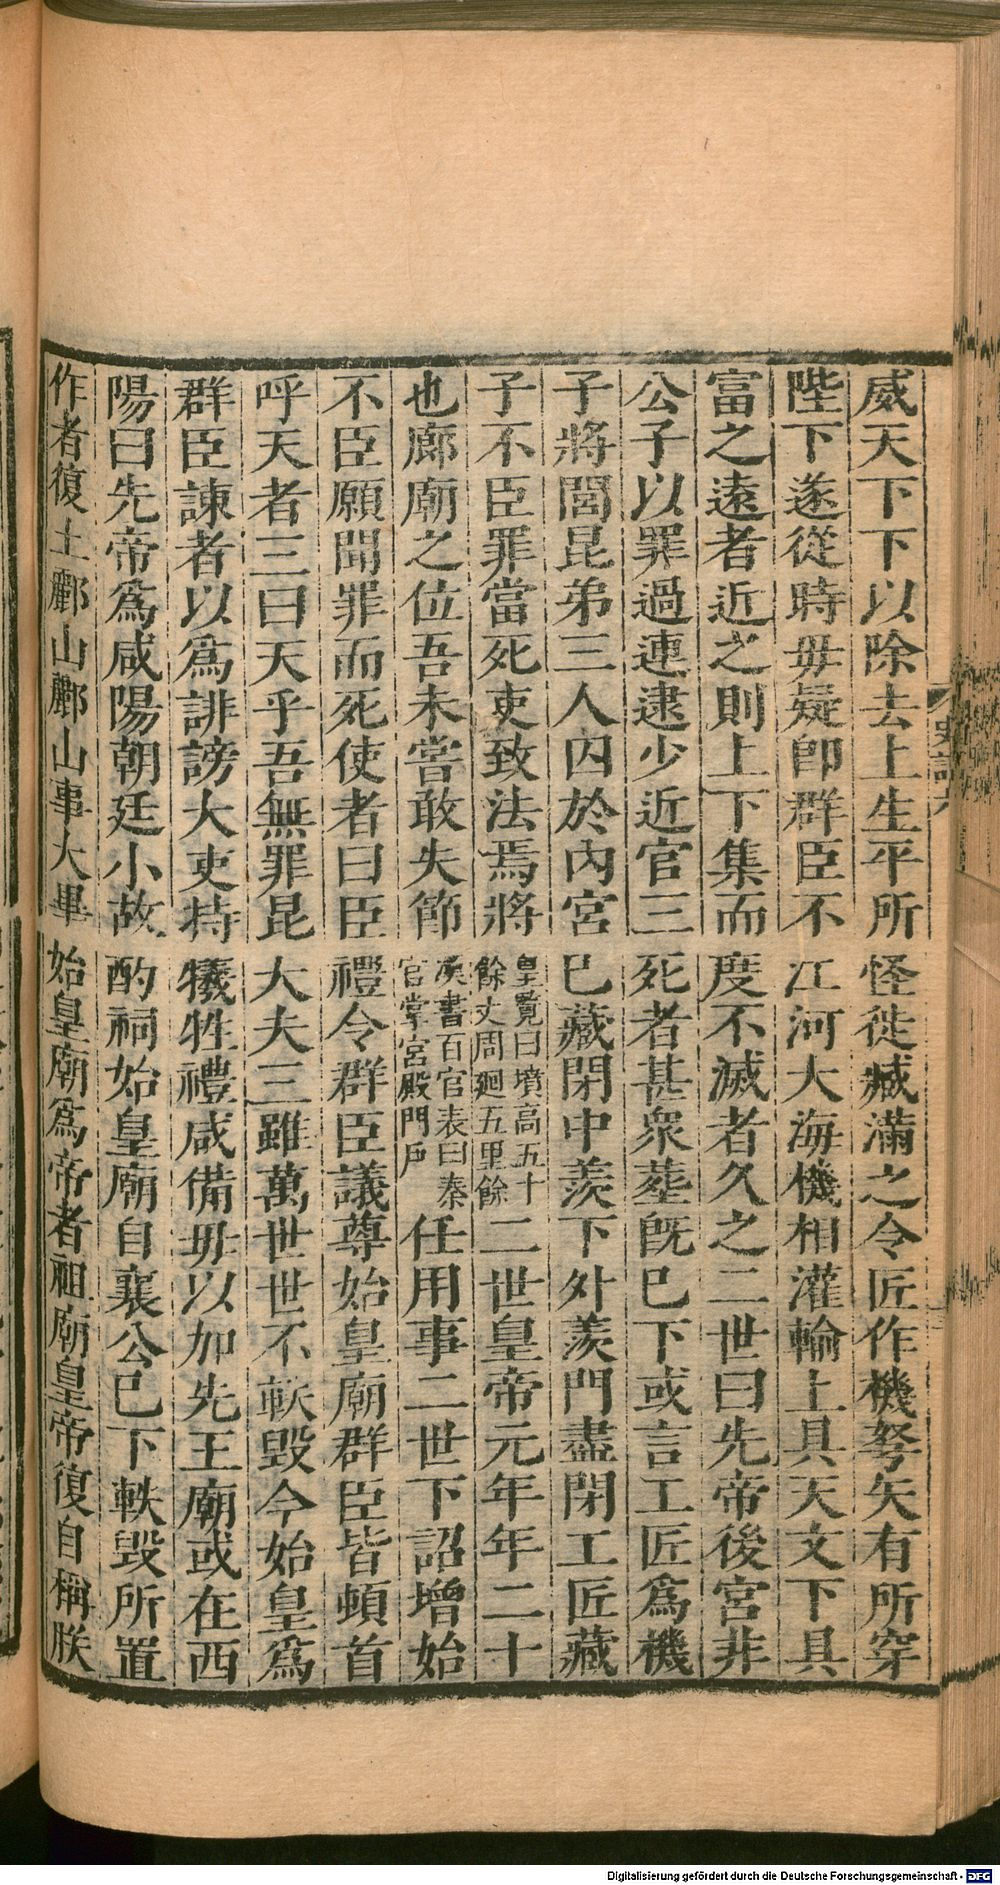 史記六
威天下下以除去上生平所怪徙臧滿之令匠作機弩矢有所穿
陛下遂從時毋疑卽群臣不江河大海機相灌輸上具天文下具
富之遠者近之則上下集而度不滅者久之二世曰先帝後宮非
公子以罪過連逮少近官三死者甚衆葬旣已下或言工匠爲機
子將閭昆弟三人囚於內宮已藏閉中羨下外羨門盡閉工匠藏
子不臣罪當死吏致法焉將皇覽曰墳高五十餘丈周廻五里餘二世皇帝元年年二十
也廊廟之位吾未嘗敢失節漢書百官表曰秦官掌宮殿門戶任用事二世下詔增始
不臣願聞罪而死使者曰臣禮令群臣議尊始皇廟群臣皆頓首
呼天者三曰天乎吾無罪昆大夫三雖萬世世不軼毀今始皇爲
群臣諫者以爲誹謗大吏持犧牲禮咸備毋以加先王廟或在西
陽曰先帝爲咸陽朝廷小故酌祠始皇廟自襄公已下軼毀所置
作者復土酈山酈山事大畢始皇廟爲帝者祖廟皇帝復自稱朕
Digitalisierung gefördert durch die Deutsche Forschungsgemeinschaft - DFG